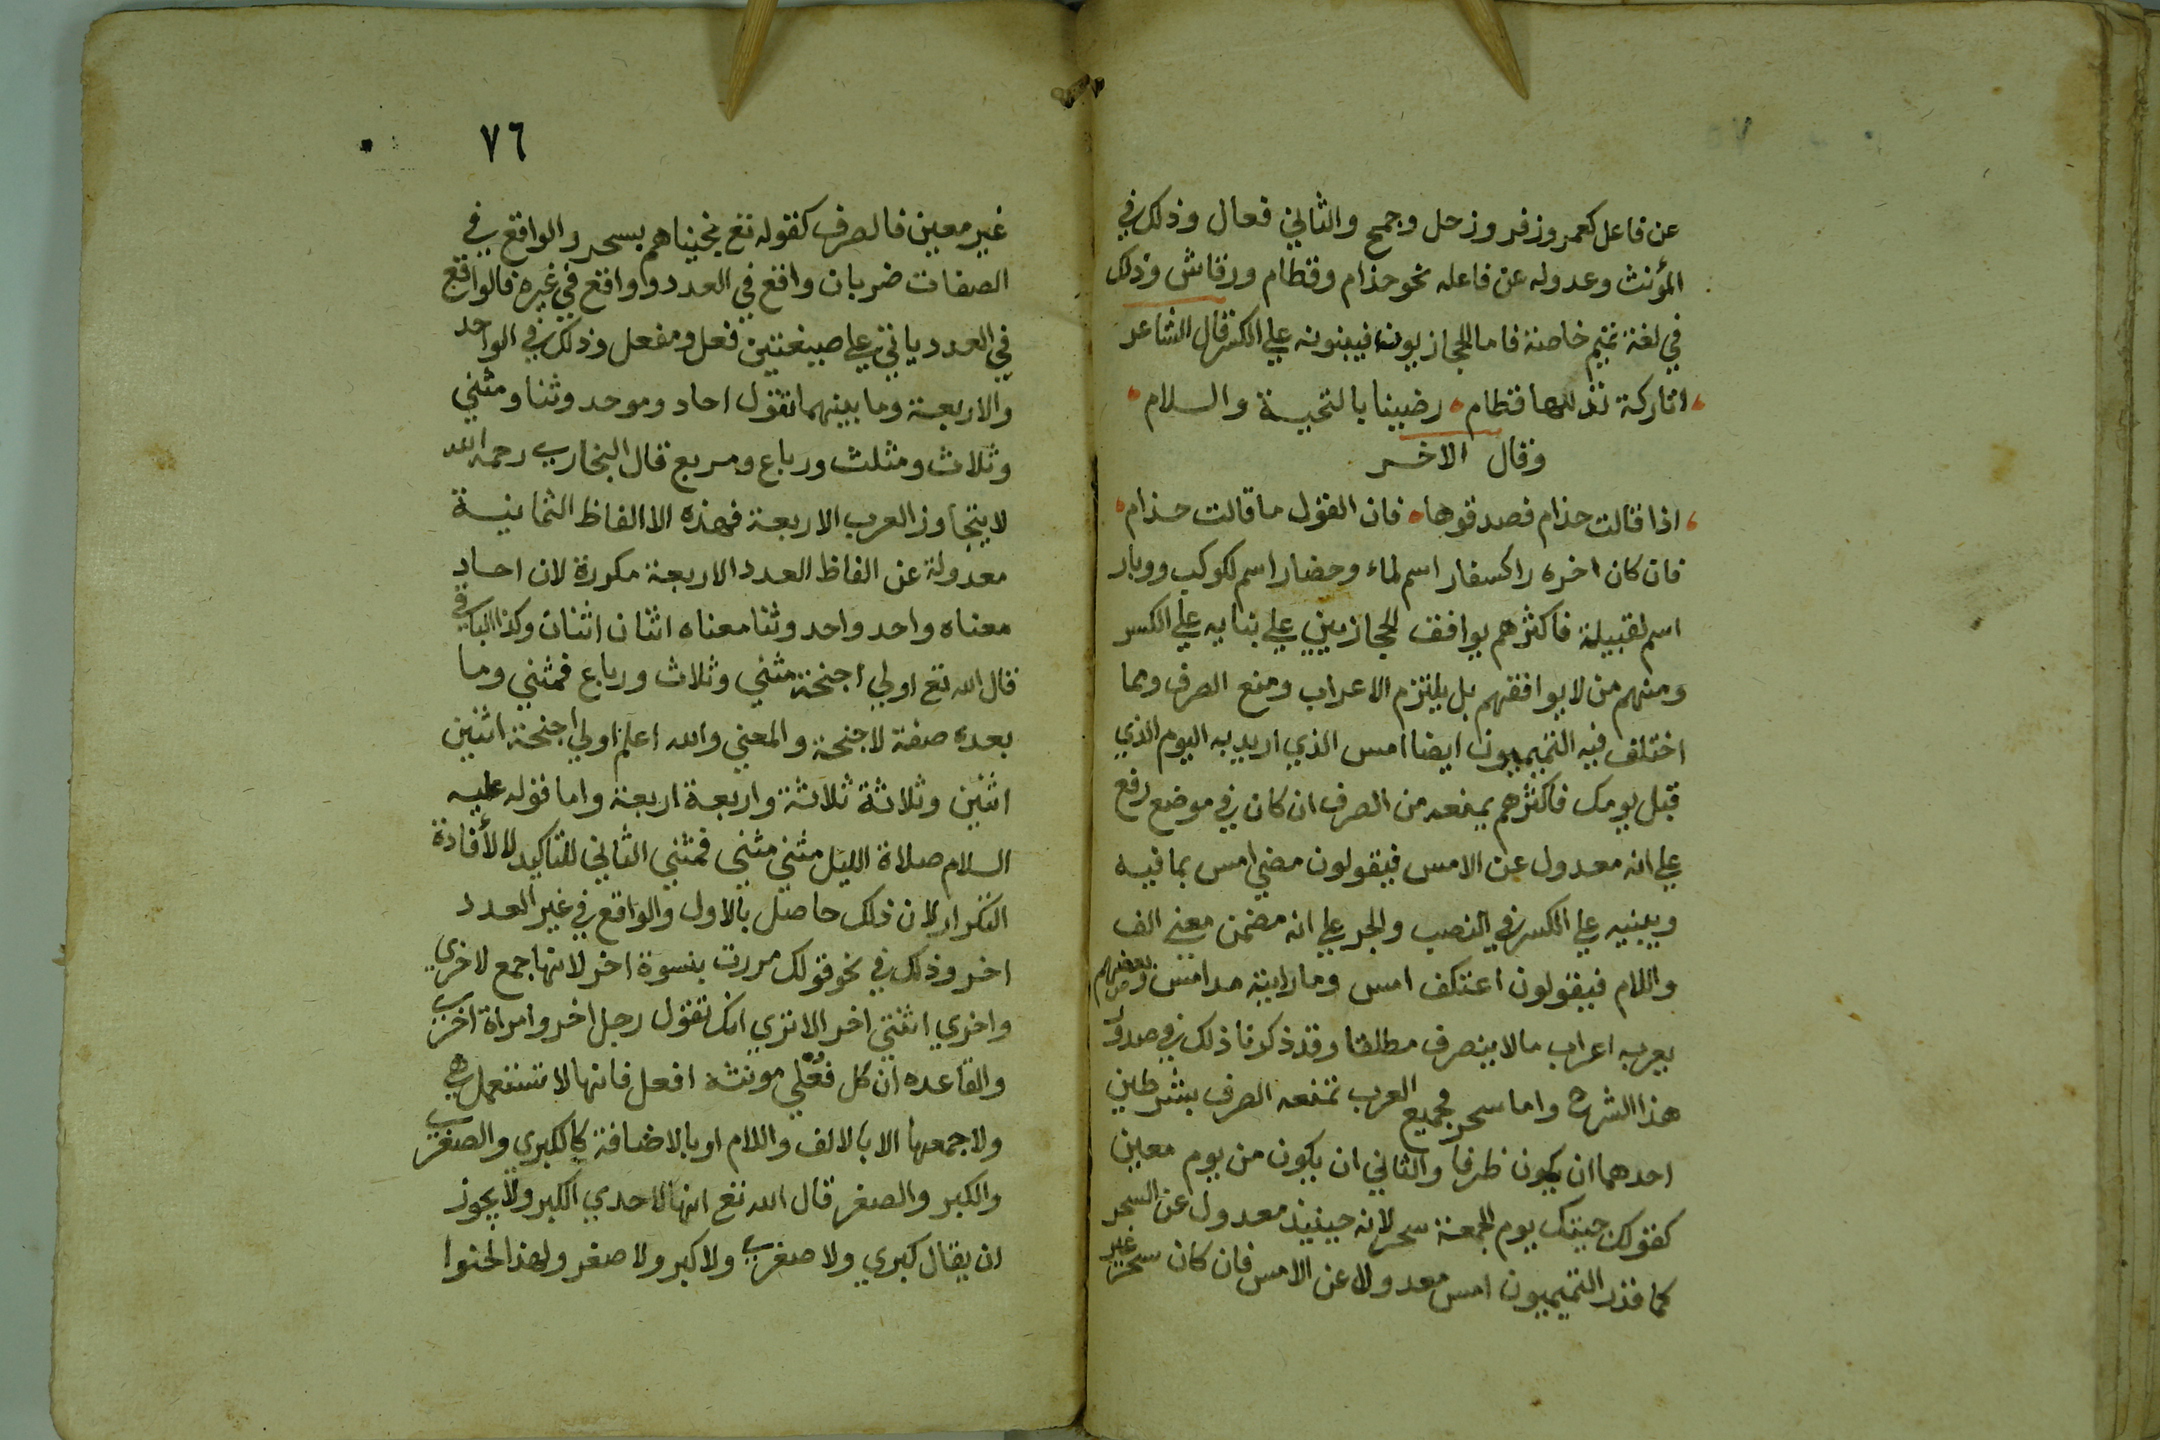 عن فاعل كعمر وزفر وزحل وجمح والثاني فعال وذلك في
المؤنث وعدوله عن فاعله نحو حذام وقطام ورقاش وذلك
في لغة تميم خاصة فاما الحجازيون فيبنونه علي الكسر قال الشاعر
اتاركة تذللها قطام رضينا بالتحية والسلام
وقال الاخر
اذا قالت حذام فصدقوها فان القول ما قالت حذام
فان كان اخره را كسفار اسم لماء وحضار اسم لكوكب ووبار
اسم لقبيلة فاكثرهم يوافق الحجازيين علي بنايه علي الكسر
ومنهم من لا يوافقهم بل يلتزم الاعراب ومنع الصرف ومما
اختلف فيه التميميون ايضا امس الذي اريد به اليوم الذي
قبل يومك فاكثرهم يمنعه من الصرف ان كان في موضع رفع
علي انه معدول عن الامس فيقولون مضي امس بما فيه
ويبنيه علي الكسر في النصب والجر علي انه مضمن معني الف
واللام فيقولون اعتكف امس وما رايته مد امس وبعضهم
يعربه اعراب مالا ينصرف مطلقا وقد ذكرنا ذلك في صدر
هذا الشرح واما سحر فجميع العرب تمنعه الصرف بشرطين
احدهما ان يكون ظرفا والثاني ان يكون من يوم معين
كقولك جيتك يوم الجمعة سحر لانه حينيذ معدول عن السحر
كما قدر التميميون امس معدولا عن الامس فان كان سحر غير
٧٦
غير معين فالصرف كقوله تع نجيناهم بسحر والواقع في
الصفات ضربان واقع في العدد وواقع في غيره فالواقع
في العدد ياتي علي صيغتين فعل ومفعل وذلك في الواحد
والاربعة وما بينهما تقول احاد وموحد وثنا ومثني
وثلاث ومثلث ورباع ومربع قال البخاري رحمه الله
لا يتجاوز العرب الاربعة فهذه الالفاظ الثمانية
معدولة عن الفاظ العدد الاربعة مكررة لان احاد
معناه واحد واحد وثنا معناه اثنان اثنان وكذا الباقي
قال الله تع اولي اجنحة مثني وثلاث ورباع فمثني وما
بعده صفة لاجنحة والمعني والله اعلم اولي اجنحة اثنين
اثنين وثلاثة ثلاثة واربعة اربعة واما قوله عليه
السلام صلاة الليل مثني مثني فمثني الثاني للتاكيد لا لافادة
التكرار لان ذلك حاصل بالاول والواقع في غير العدد
اخر وذلك في نحو قولك مررت بنسوة اخر لانها جمع لاخري
واخري انثي اخر الا تري انك تقول رجل اخر وامراة اخري
والقاعده ان كل فعلي مونثة افعل فانها لا تستعمل هي
ولا جمعها الا بالالف واللام او بالاضافة كالكبري والصغري
والكبر والصغر قال الله تع انها لاحدي الكبر ولا يجوز
ان يقال كبري ولا صغري ولا كبر ولا صغر ولهذا لحنوا